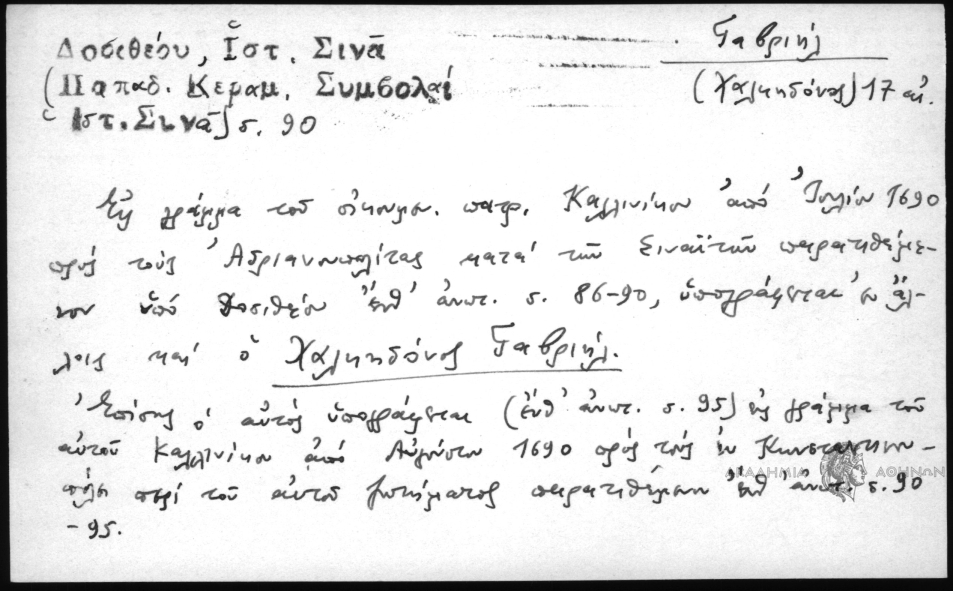 Δοσιθέου, Ἱστ. Σινᾶ
(Παπαδ. Κεραμ. Συμβολαί
Ἱστ. Σινᾶ) σ. 90
Γαβριήλ
(Χαλκηδόνος) 17 αἰ.
Εἰς γράμμα τοῦ οἰκουμ. πατρ. Καλλινίκου ἀπό Ἰουλίου 1690
πρός τούς Ἀδριανουπολίτας κατά τῶν Σιναϊτῶν παρατιθέμε-
νον ὑπό Δοσιθέου ἔνθ' ἀνωτ. σ. 86-90, ὑπογράφεται ἐν ἄλ-
λοις καί ὁ Χαλκηδόνος Γαβριήλ.
Ἐπίσης ὁ αὐτός ὑπογράφεται (ἔνθ' ἀνωτ. σ. 95) εἰς γράμμα τοῦ
αὐτοῦ Καλλινίκου ἀπό Αὐγούστου 1690 πρός τούς ἐν Κωνσταντινου-
πόλει περί τοῦ αὐτοῦ ζητήματος παρατιθέμενον ἔνθ' ἀνωτ. σ. 90
-95.
ΑΚΑΔΗΜΙΑ ΑΘΗΝΩΝ